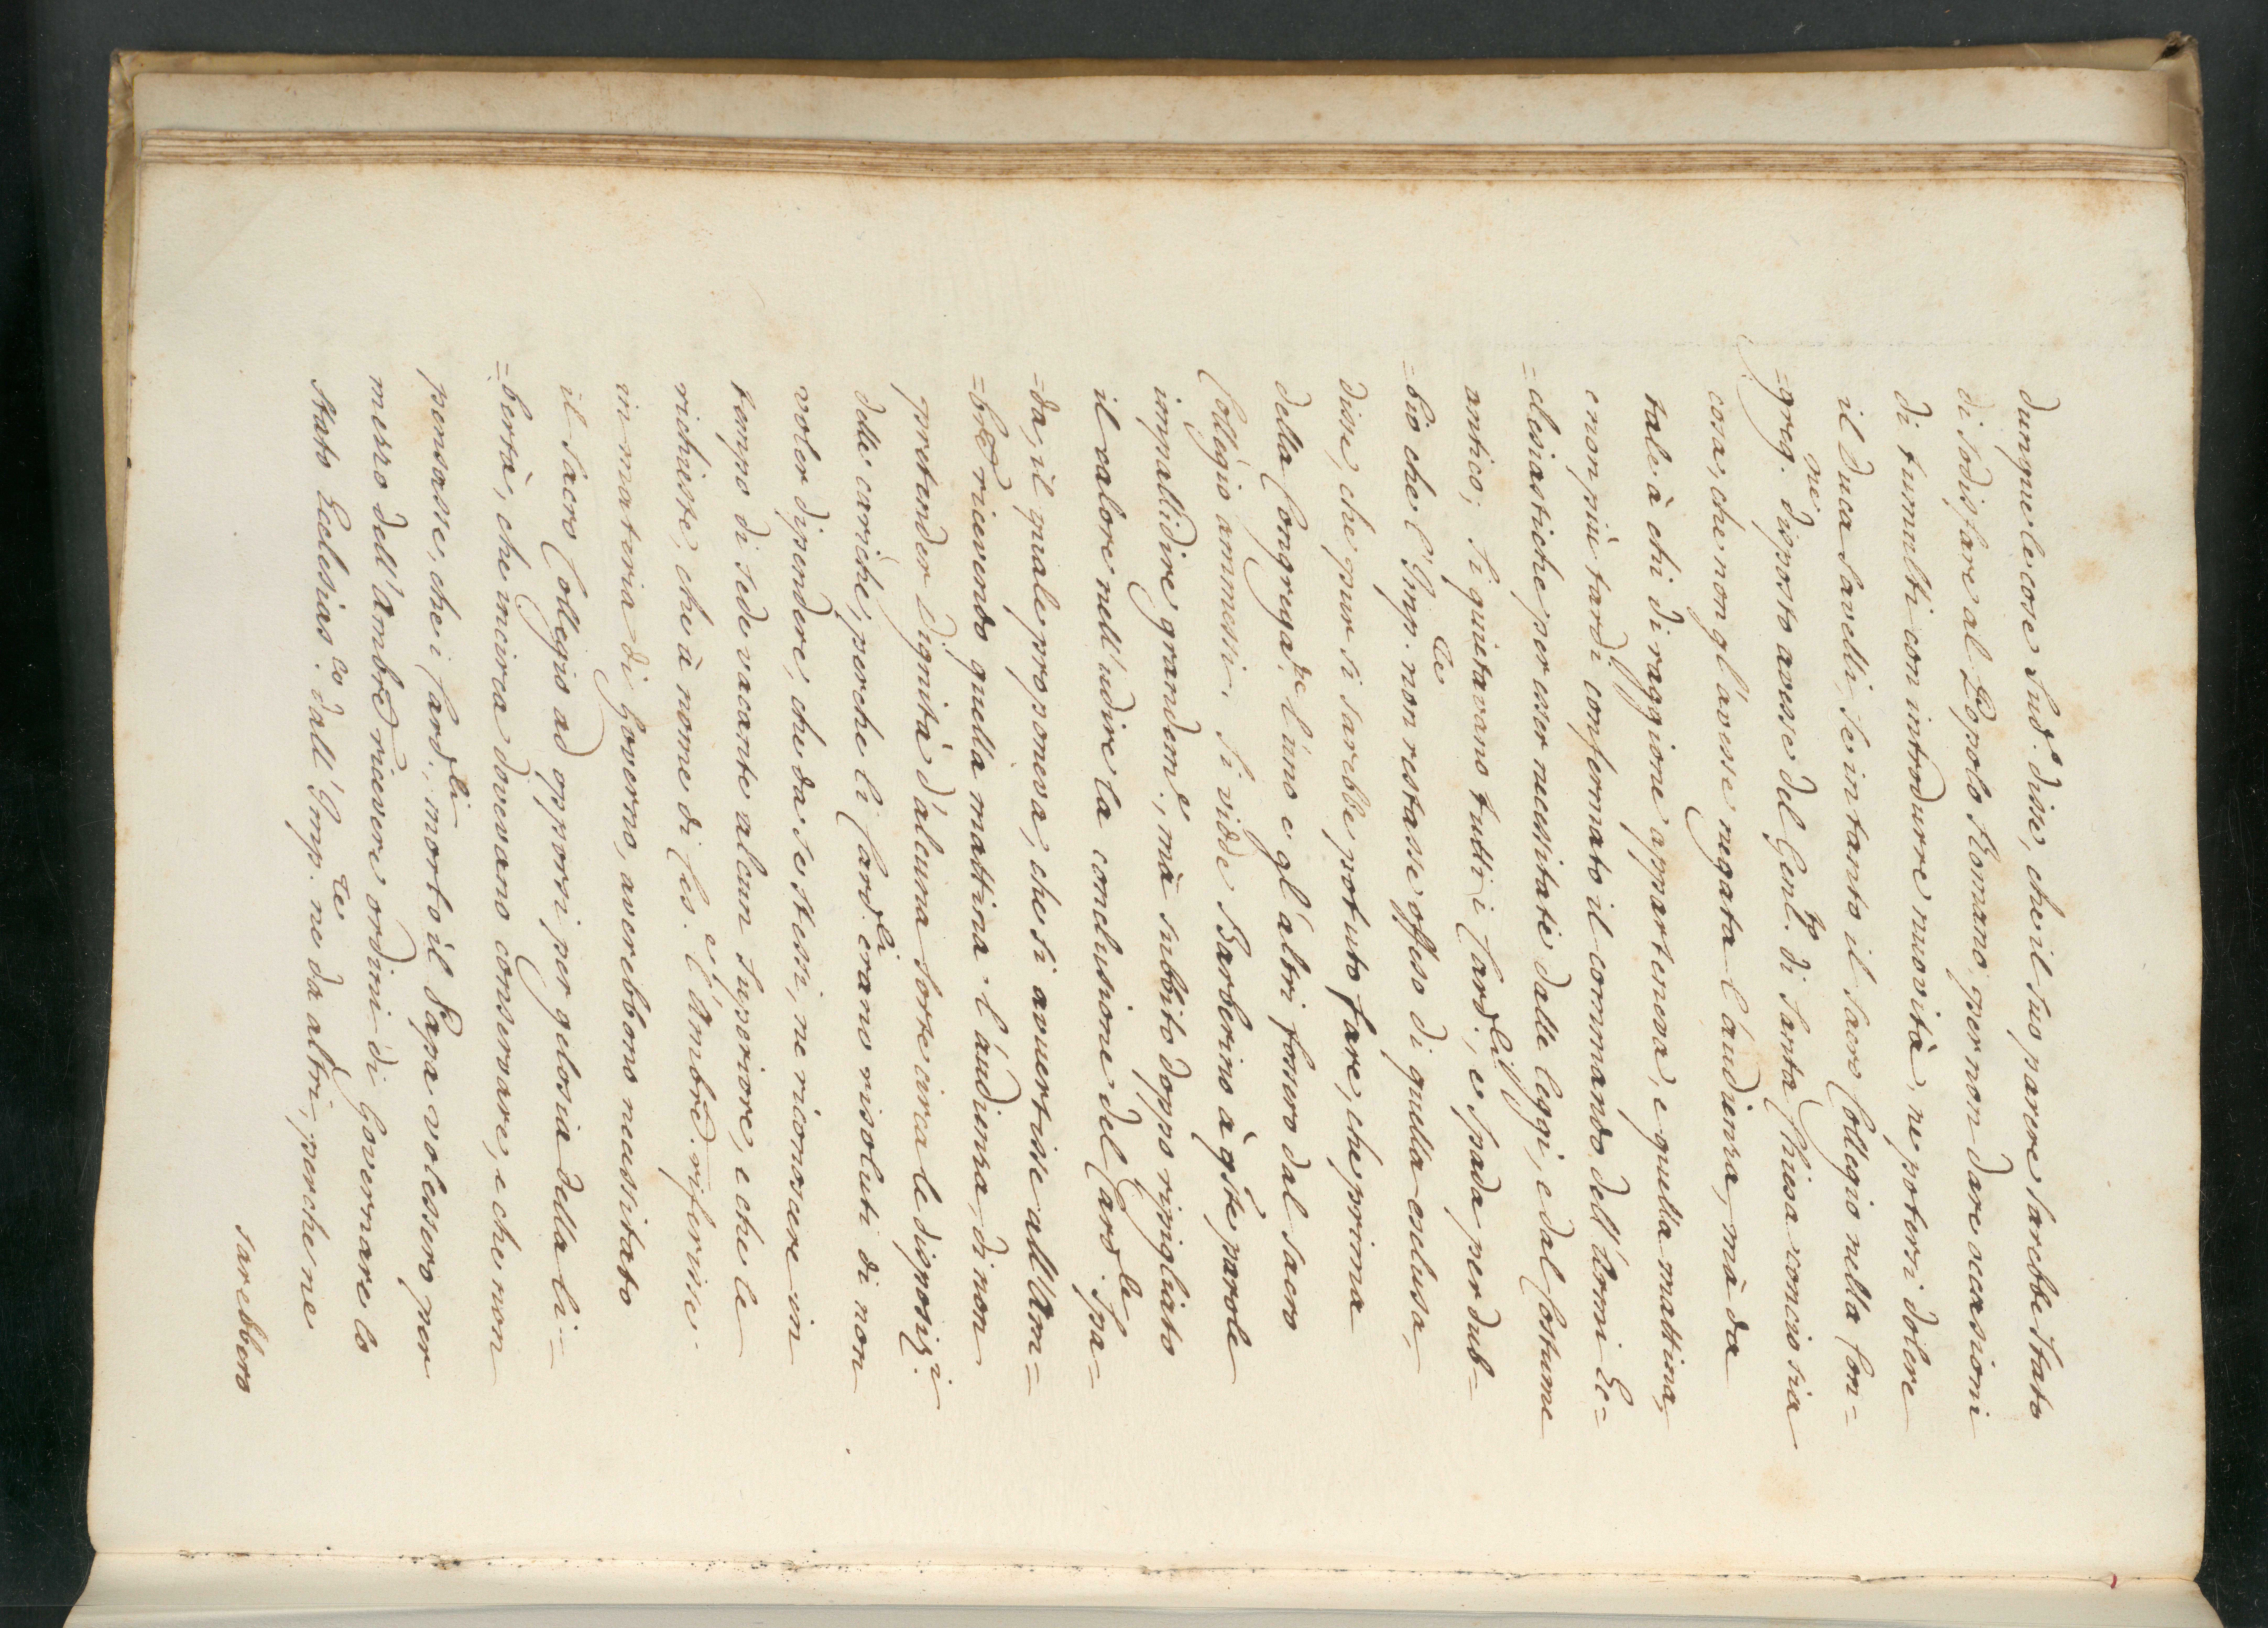 dunque le cose sud.e disse, che il suo parere sarebbe stato
di sodisfare al Popolo Romano, per non dare occasioni
di tumulti con introdurre novità, ne potersi dolere
il Duca Savelli, se in tanto il sacro Collegio nella Con=
=greg.ne disposto avesse del Gent.to di Santa Chiesa concio sia
cosa, che non gl'avesse negata l'audienza, mà da
tale à chi di raggione apparteneva, e quella mattina,
e non più tardi confermato il commando dell'Armi Ec=
=clesiastiche per esser necessitate dalle leggi, e dal costume
antico; si quietavano tutti i Card.li, e Spada per dub=
=bio che l'Imp.re non restasse offeso di quella esclusa,
disse, che pur si sarebbe potuto fare, che prima
della Congregaz.ne l'uno e gl'altri fossero dal sacro
Collegio ammessi. Si vidde Barberino à q̃ste parole
impallidire grandem.e; mà subbito doppo ripigliato
il valore nell'udire la conclusione del Card.le Spa=
=da, il quale proponeva, che si avvertisse all'Am=
=bre ricevendo quella mattina l'audienza, di non
pretender dignità d'alcuna sorte circa le disposiz.i
delle cariche, perche li Card.li erano risoluti di non
voler dipendere, che da se stessi, ne riconoscere in
tempo di sede vacante alcun superiore, e che le
richieste, che à nome di Ces.e l'Ambre. riferisse
in materia di Governo, averebbono necessitato
il sacro Collegio ad opporsi per gelosia della li=
=bertà, che incirca dovevano conservare, e che non
pensasse, che i Card.li, morto il Papa volessero per
mezzo dell'Ambre ricevere ordini di Governare lo
stato Ecclesias.co dall'Imp.re ne da altri, perche ne
sarebbero